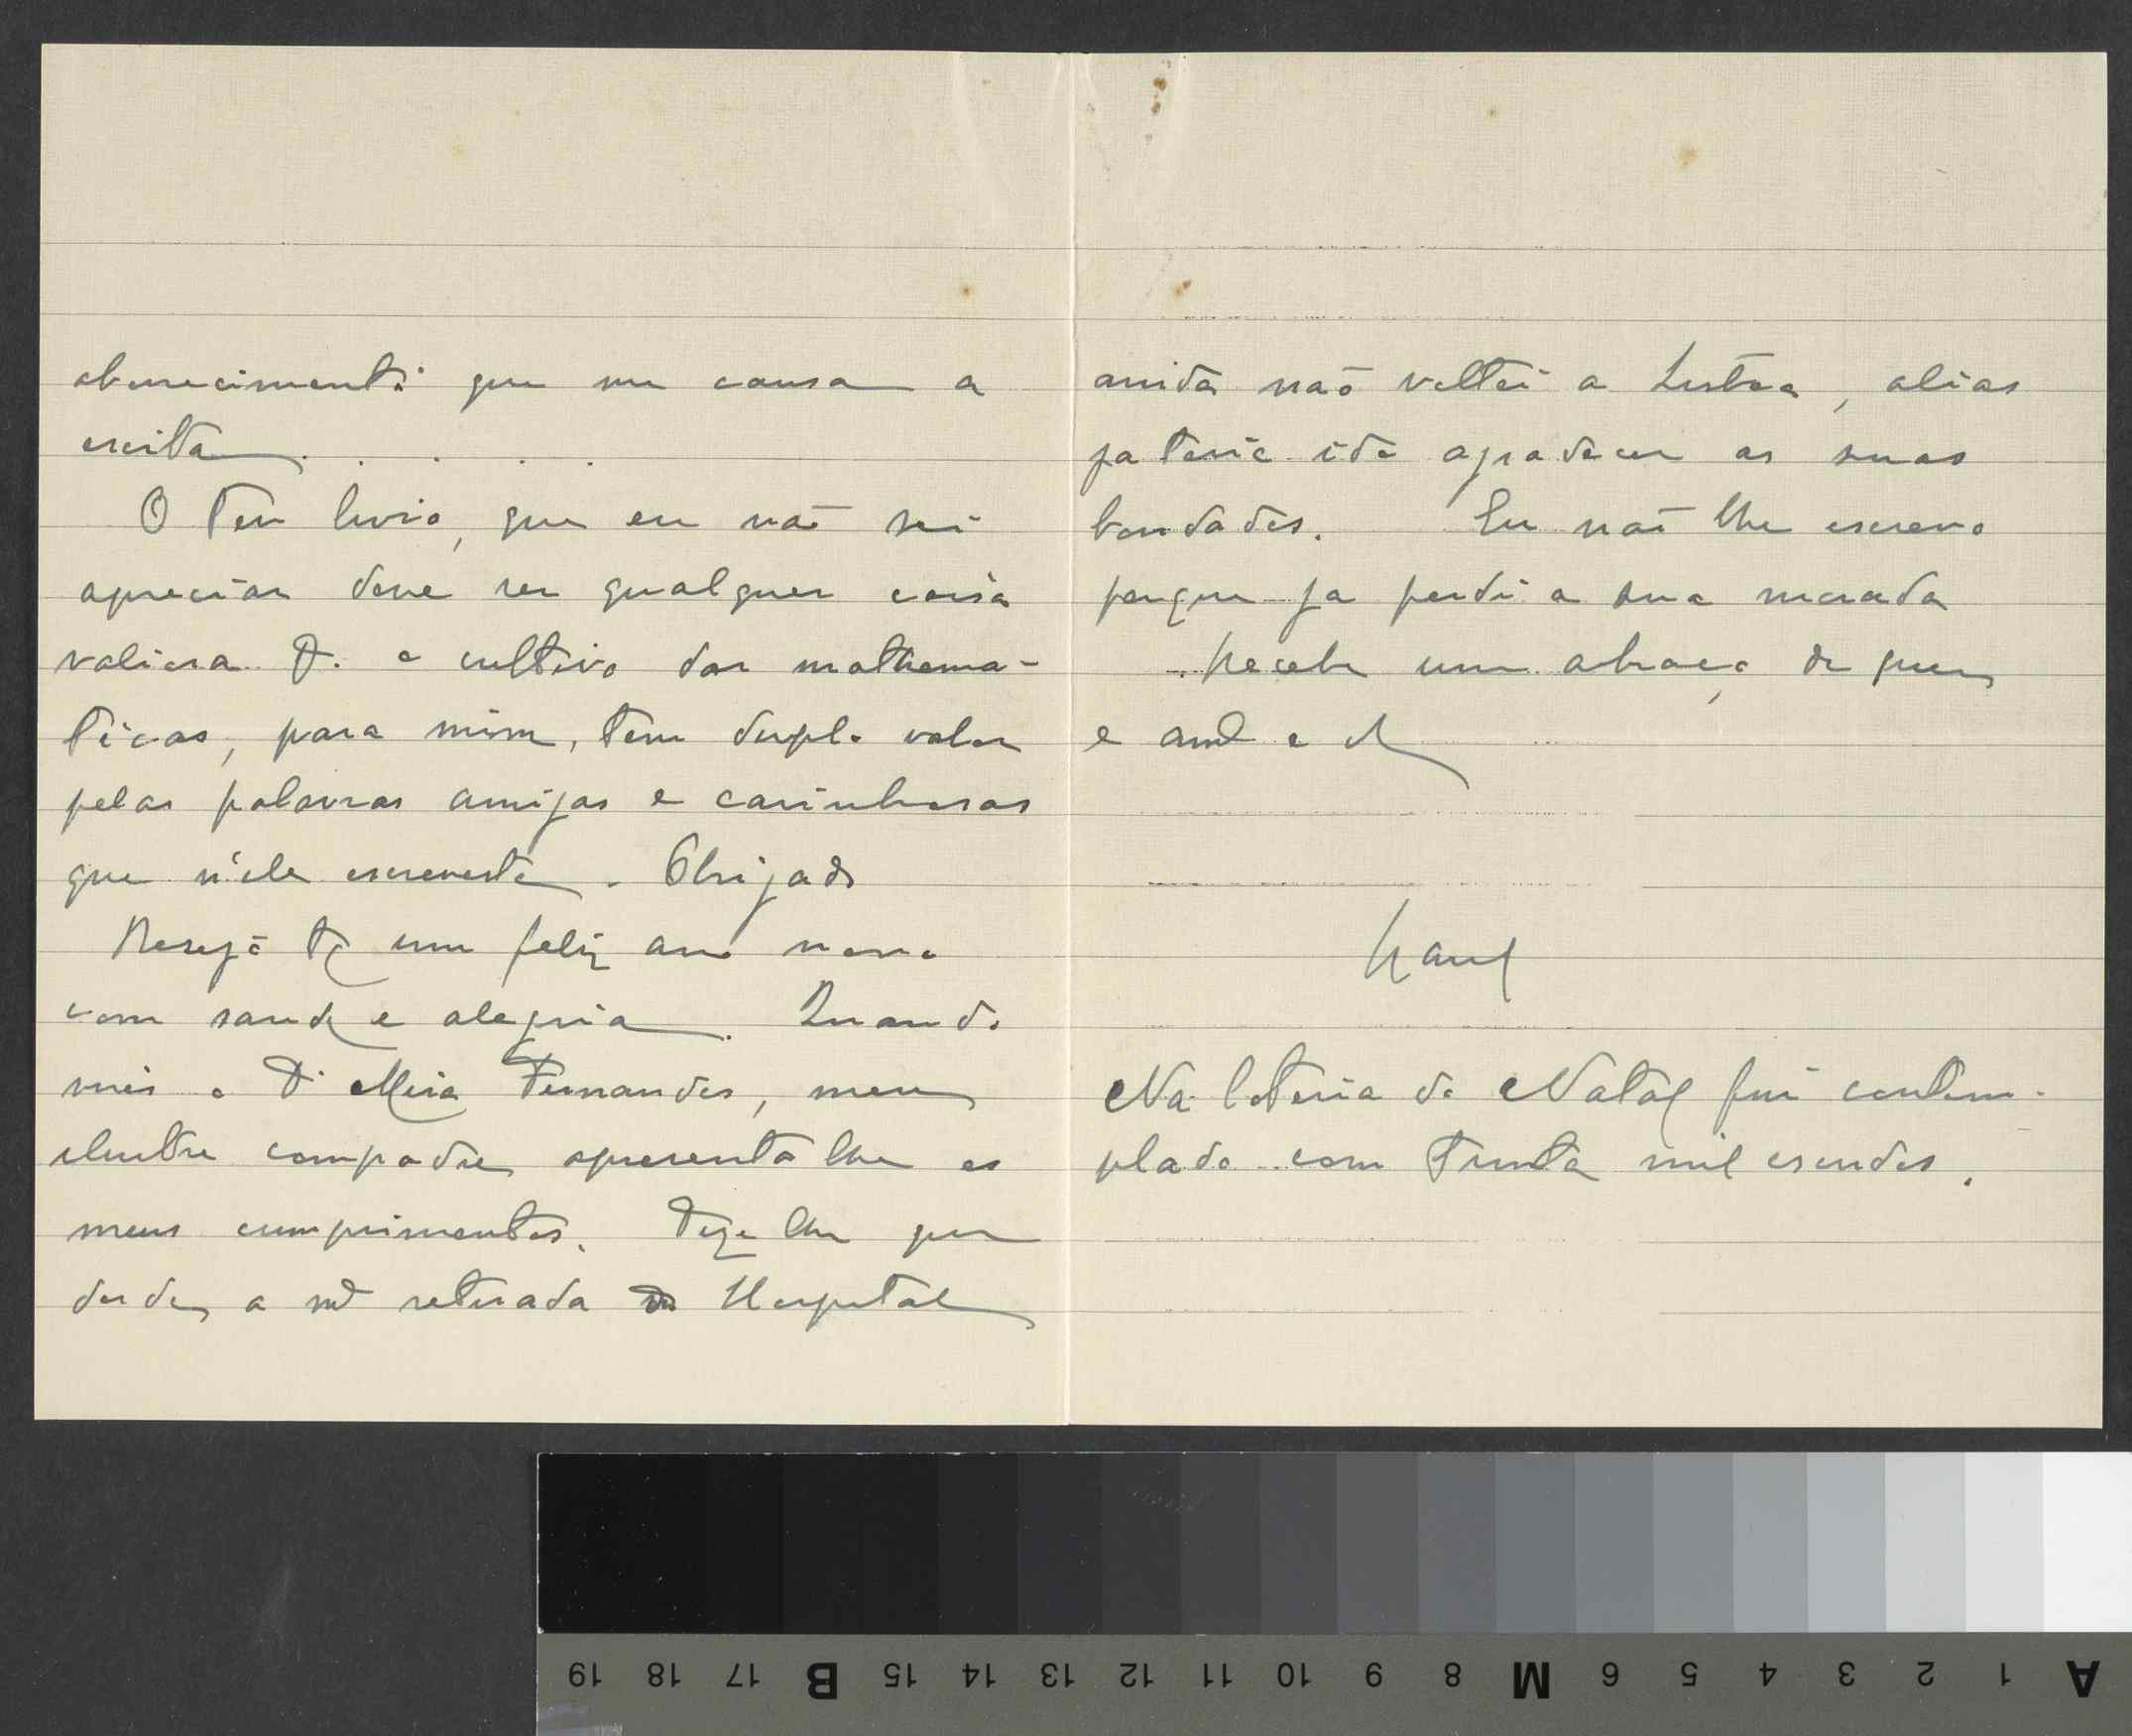 aborrecimento que me causa a
escrita . . . . .
O teu livro, que eu não sei
apreciar deve ser qualquer coisa
valiosa p. o cultivo das mathema-
ticas, para mim, tem duplo valor
pelas palavras amigas e carinhosas
que n'ele escreveste. Obrigado
Desejo te um feliz ano novo
com saude e alegria. Quando
vires o Dr Mira Fernandes, meu
ilustre compadre apresenta lhe os
meus cumprimentos. Dize lhe que
desde a mª retirada do Hospital
ainda não voltei a Lisboa, alias
ja teria ido agradecer as suas
bondades. Eu não lhe escrevo
porque ja perdi a sua morada
Recebe um abraço de quem
e amº e
Raul
Na loteria do Natal fui contem-
plado com trinta mil escudos.
19 18 17 B 15 14 13 12 11 10 9 8 M 6 5 4 3 2 1 A